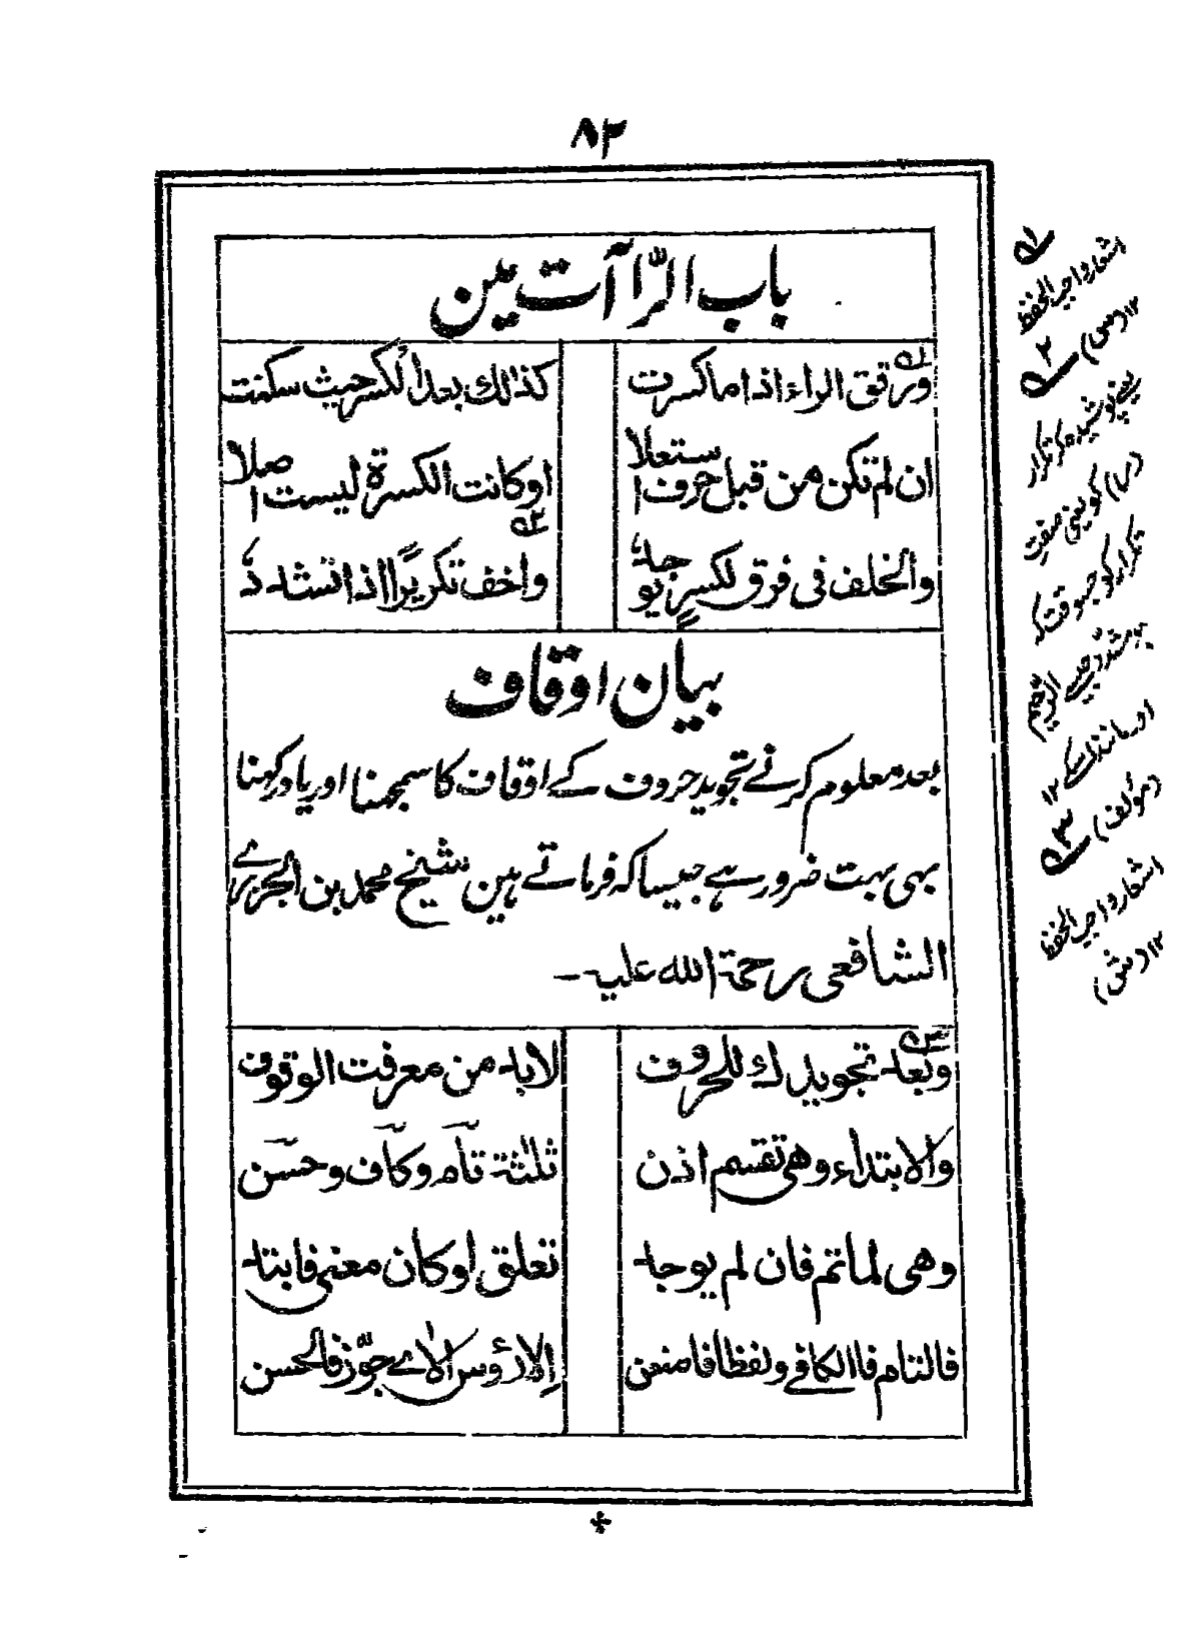 ۸۳
باب الرّاآت مین
ورقق الراء اذا ما کسرت
کذالك بعد الکسر حیث سکنت
ان لم تکن من قبل حرف استعلا
اوکانت الکسرة لیست اصلا
والخلف فی فرق لکسرٍ یوجد
واخف تکریرًا اذا تشدد
بیان اوقاف
بعد معلوم کرنے تجوید حروف کے اوقاف کا سمجھنا اور یاد رکھنا
بھی بہت ضرور ہے جیسا کہ فرماتے ہین شیخ محمد بن الجزری
الشافعی رحمة الله علیہ۔
وبعد تجویدك للحروف
لابد من معرفت الوقوف
والابتداء وھی تقسم اذن
ثلثة تام وکاف وحسن
وھی لما تم فان لم یوجد
تعلق اوکان معنی فابتد
فالتام فاالکافی ولفظا فامنعن
الا رؤس الای جوّز فالحسن
۱
اشعار واجب الحفظ
۱۲ (س)
۲
یعنے پوشیدہ کر تکرار
(را) کو یعنی صفتِ
تکرار کو جسوقت کہ
مشدّد جیسے الرّحیم
اور مانند اسکے ۱۲
(مؤلف)
۳
اشعار واجب الحفظ
۱۲ (ش)